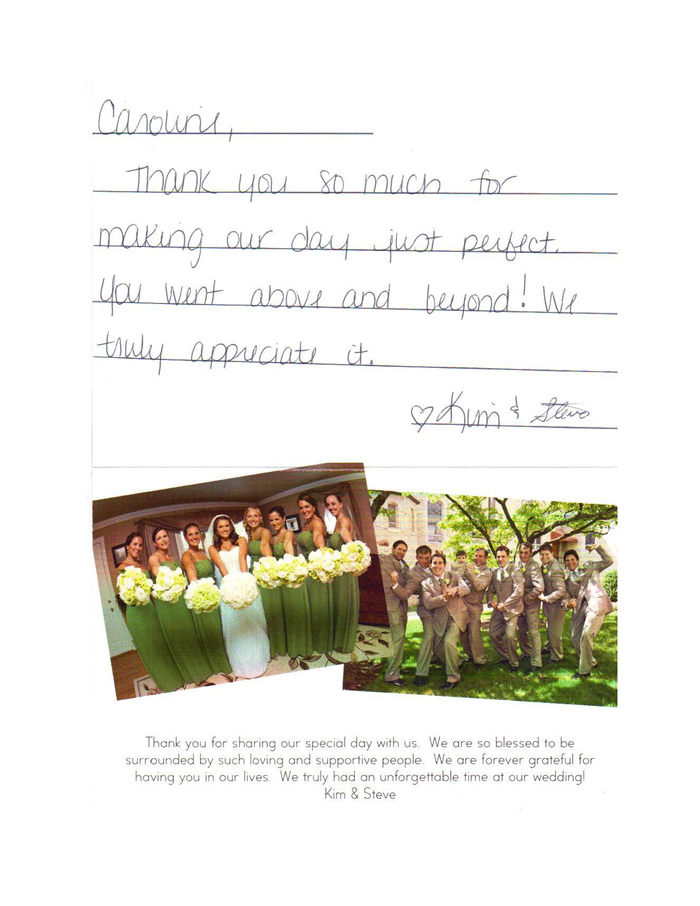 Caroline,
Thank you so much for
making our day just perfect.
You went above and beyond! We
truly appreciate it.
♡ Kim & Steve
Thank you for sharing our special day with us. We are so blessed to be
surrounded by such loving and supportive people. We are forever grateful for
having you in our lives. We truly had an unforgettable time at our wedding!
Kim & Steve